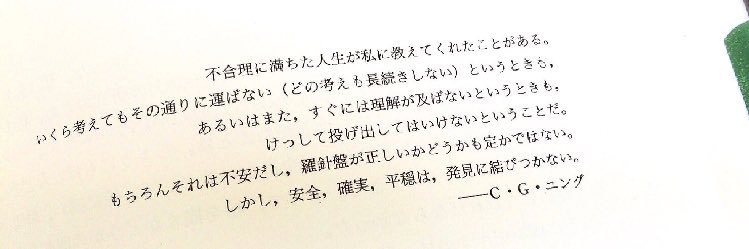 不合理に満ちた人生が私に教えてくれたことがある。
いくら考えてもその通りに運ばない（どの考えも長続きしない）というときも，
あるいはまた，すぐには理解が及ばないというときも，
けっして投げ出してはいけないということだ。
もちろんそれは不安だし，羅針盤が正しいかどうかも定かではない。
しかし，安全，確実，平穏は，発見に結びつかない。
――C・G・ニング